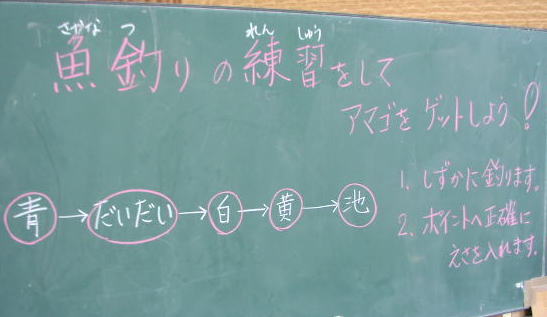 さかな つ れん しゅう
魚釣りの練習をして
アマゴをゲットしよう!
青→だいだい→白→黄→池
1. しずかに釣ります。
2. ポイントへ正確に
えさを入れます。